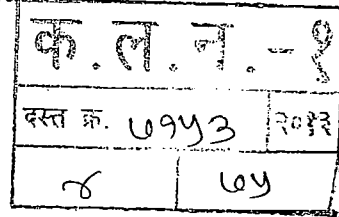 क.ल.न.-१
दस्त क्र. ७१५३ २०१३
४ ७५